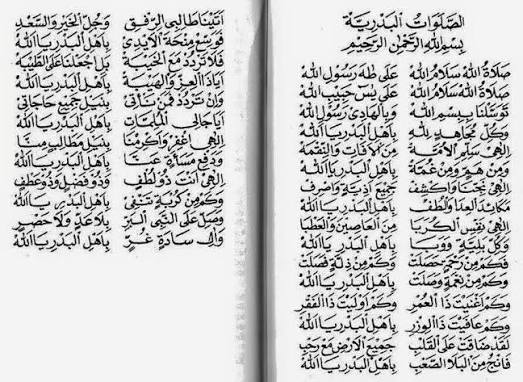 الصَّلَوَاتُ الْبَدْرِيَّةْ
بِسْمِ اللهِ الرَّحْمٰنِ الرَّحِيْمِ
صَلَاةُ اللهِ سَلَامُ اللهِ عَلَى طٰهَ رَسُوْلِ اللهِ
صَلَاةُ اللهِ سَلَامُ اللهِ عَلَى يٰسٓ حَبِيْبِ اللهِ
تَوَسَّلْنَا بِبِسْمِ اللهِ وَبِالْهَادِى رَسُوْلِ اللهِ
وَكُلِّ مُجَاهِدٍ لِلّٰهِ بِاَهْلِ الْبَدْرِ يَا اَللهُ
اِلٰهِى سَلِّمِ الْاُمَّةْ مِنَ الْآفَاتِ وَالنِّقْمَةْ
وَمِنْ هَمٍّ وَمِنْ غُمَّةْ بِاَهْلِ الْبَدْرِ يَا اَللهُ
اِلٰهِى نَجِّنَا وَاكْشِفْ جَمِيْعَ اَذِيَّةٍ وَاصْرِفْ
مَكَائِدَ الْعِدَا وَالْطُفْ بِاَهْلِ الْبَدْرِ يَا اَللهُ
اِلٰهِى نَفِّسِ الْكُرَبَا مِنَ الْعَاصِيْنَ وَالْعَطْبَا
وَكُلِّ بَلِيَّةٍ وَوَبَا بِاَهْلِ الْبَدْرِ يَا اَللهُ
فَكَمْ مِنْ رَحْمَةٍ حَصَلَتْ وَكَمْ مِنْ ذِلَّةٍ فَصَلَتْ
وَكَمْ مِنْ نِعْمَةٍ وَصَلَتْ بِاَهْلِ الْبَدْرِ يَا اَللهُ
وَكَمْ اَغْنَيْتَ ذَا الْعُمْرِ وَكَمْ اَوْلَيْتَ ذَا الْفَقْرِ
وَكَمْ عَافَيْتَ ذَا الْوِزْرِ بِاَهْلِ الْبَدْرِ يَا اَللهُ
لَقَدْ ضَاقَتْ عَلَى الْقَلْبِ جَمِيْعُ الْاَرْضِ مَعْ رَحْبِ
فَانْجِ مِنَ الْبَلَا الصَّعْبِ بِاَهْلِ الْبَدْرِ يَا اَللهُ
اَتَيْنَا طَالِبِى الرِّفْقِ وَجُلِّ الْخَيْرِ وَالسَّعْدِ
فَوَسِّعْ مِنْحَةَ الْاَيْدِى بِاَهْلِ الْبَدْرِ يَا اَللهُ
فَلَا تَرْدُدْ مَعَ الْخَيْبَةْ بَلِ اجْعَلْنَا عَلَى الطَّيْبَةْ
اَيَا ذَا الْعِزِّ وَالْهَيْبَةْ بِاَهْلِ الْبَدْرِ يَا اَللهُ
وَاِنْ تَرْدُدْ فَمَنْ نَأْتِى بِنَيْلِ جَمِيْعِ حَاجَاتِى
اَيَا جَالِى الْمُلِمَّاتِ بِاَهْلِ الْبَدْرِ يَا اَللهُ
اِلٰهِى اغْفِرْ وَاَكْرِمْنَا بِنَيْلِ مَطَالِبٍ مِنَّا
وَدَفْعِ مَسَاءَةٍ عَنَّا بِاَهْلِ الْبَدْرِ يَا اَللهُ
اِلٰهِى اَنْتَ ذُوْ لُطْفٍ وَذُوْ فَضْلٍ وَذُوْ عَطْفٍ
وَكَمْ مِنْ كُرْبَةٍ تَنْفِى بِاَهْلِ الْبَدْرِ يَا اَللهُ
وَصَلِّ عَلَى النَّبِى الْبَرِّ بِلَا عَدٍّ وَلَا حَصْرِ
وَآلِ سَادَةٍ غُرِّ بِاَهْلِ الْبَدْرِ يَا اَللهُ